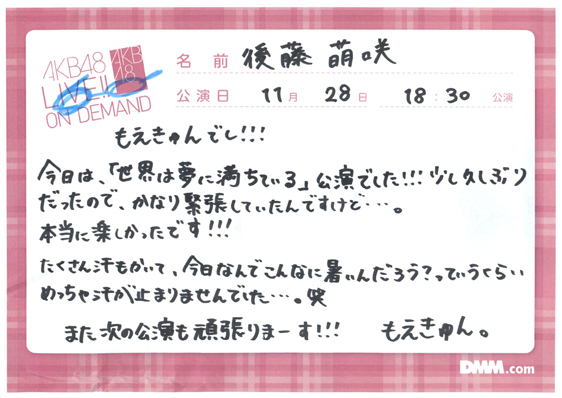 AKB48
LIVE!!
ON DEMAND
AKB
48
名前 後藤 萌咲
公演日 11月 28日 18:30 公演
もえきゅんでし!!!
今日は、「世界は夢に満ちている」公演でした!!!少し久しぶり
だったので、かなり緊張していたんですけど…。
本当に楽しかったです!!!
たくさん汗もかいて、今日なんでこんなに暑いんだろう?っていうくらい
めっちゃ汗が止まりませんでした…。笑
また次の公演も頑張りまーす!!! もえきゅん。
DMM.com